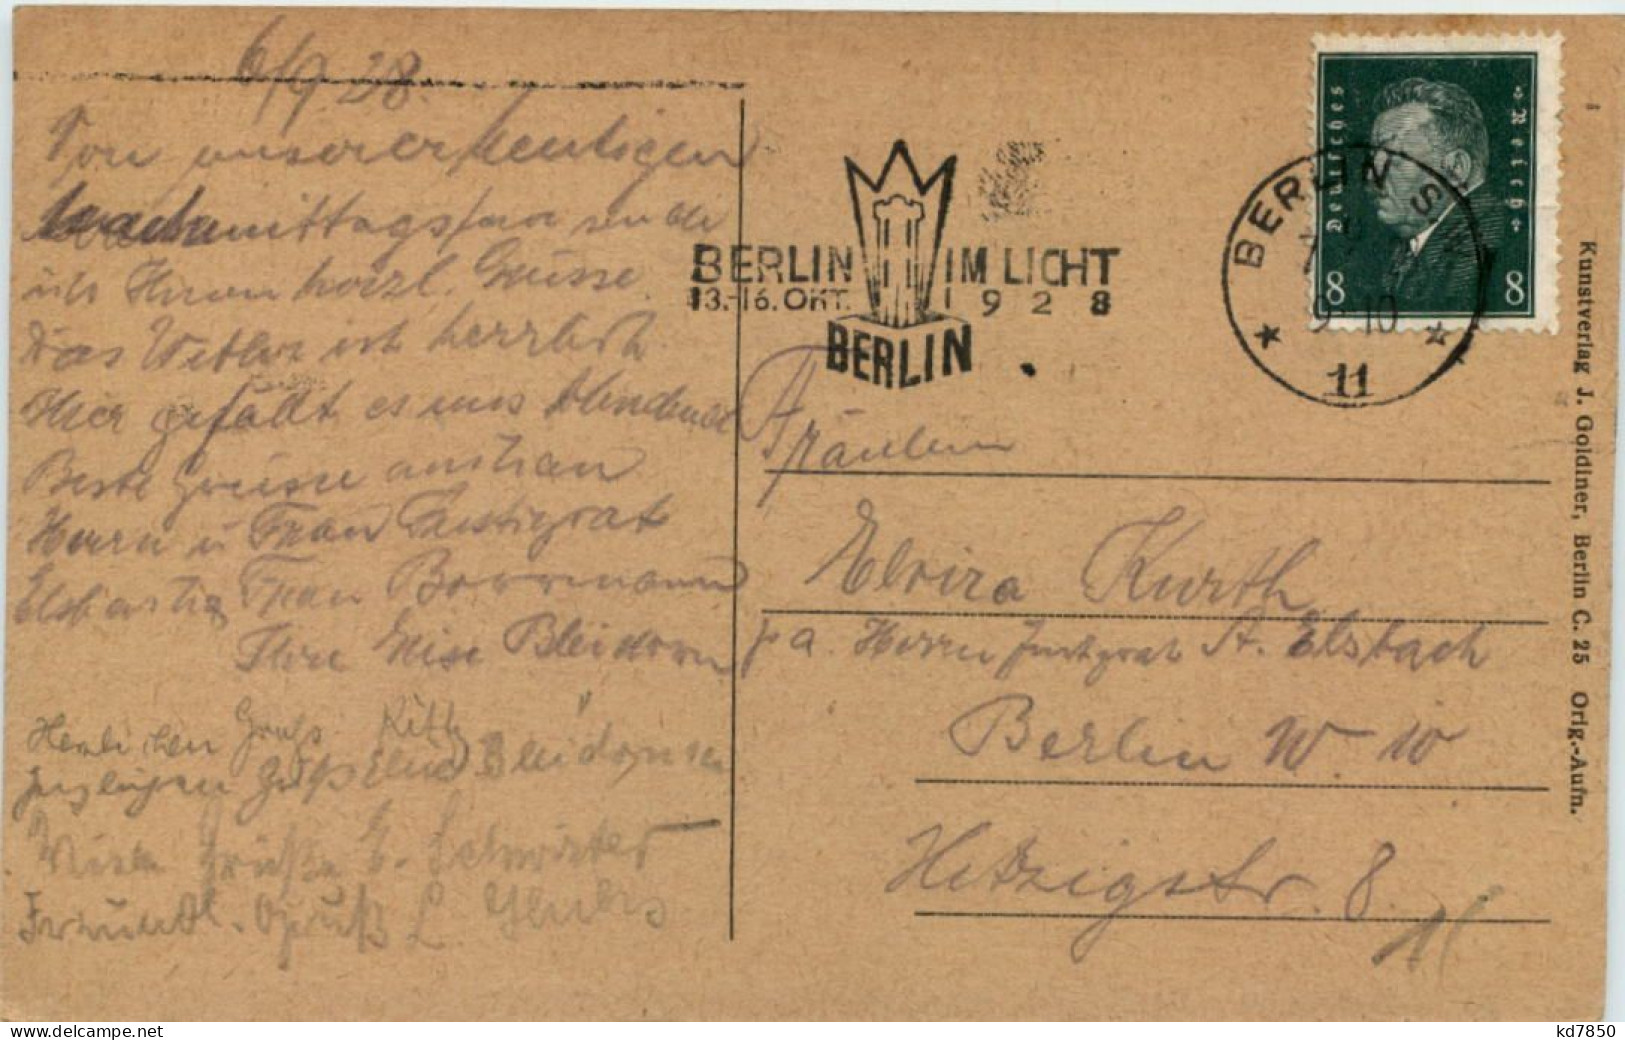 6/9 28.
Von unserer heutigen
nachmittags
ich Ihnen herzl. Grüsse.
Das Wetter ist herrlich.
Hier gefällt es uns blendend
Beste Grüsse
Herrn u Frau Justizrat
Elsbach Frau Borrmann
Ihre Bleidorn
Herzlichen Gruß Käthe
Gruß Bleidorn
Viele Grüße E. Schröter
Freundl. Gruß L
BERLIN IM LICHT
13.-16. OKT. 1928
BERLIN
BERLIN SW
9 10
11
Deutsches Reich
8 8
Fräulein
Elvira Kurth
p a. Herrn Justizrat A. Elsbach
Berlin W. 10
Hitzigstr. 8.
Kunstverlag J. Goldiner, Berlin C. 25 Orig.-Aufn.
kd7850